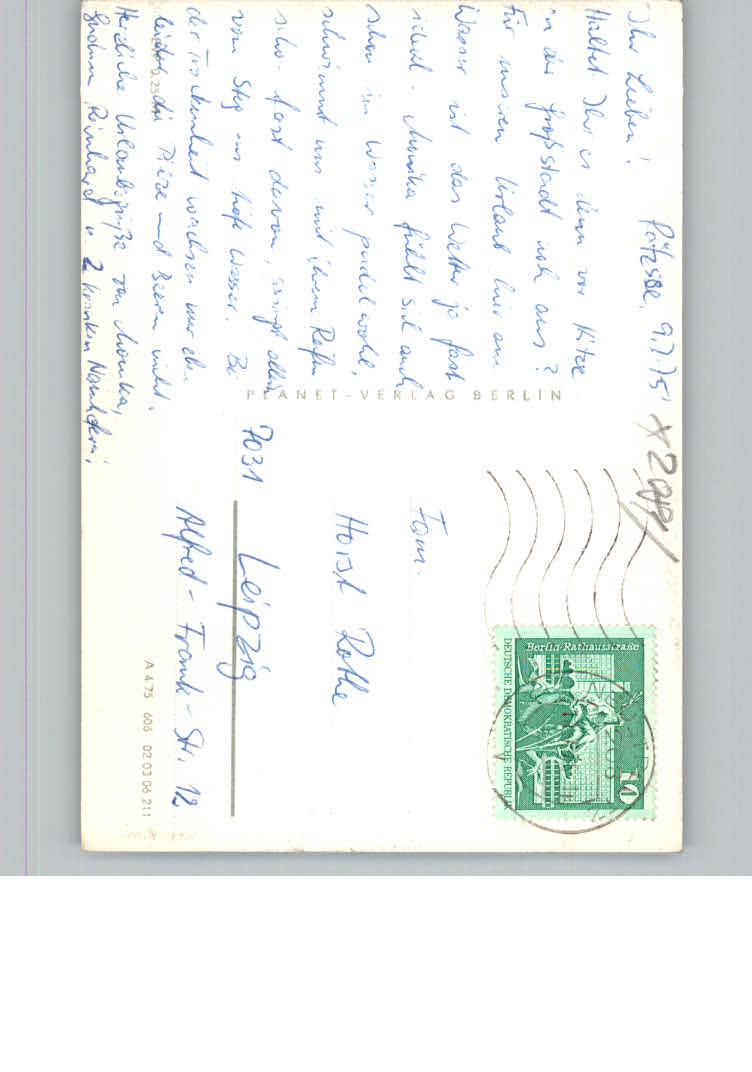 Ihr Lieben!
9.7.75
Haltet Ihr es denn vor Hitze
in der Großstadt noch aus?
Für unseren Urlaub hier am
Wasser ist das Wetter ja fast
ideal. Monika fühlt sich auch
schon im Wasser pudelwohl,
schwimmt uns mit ihrem Reifen
schon fast davon, springt allein
vom Steg ins tiefe Wasser. Bei
der Trockenheit wachsen nur eben
leider die Pilze und Beeren nicht.
Herzliche Urlaubsgrüße von Monika,
Gudrun Reinhard u. 2 kranken
PLANET-VERLAG BERLIN
Fam.
Horst Rothe
7031 Leipzig
Alfred-Frank-Str. 12
A 4 75 606 02 03 06 211
Berlin-Rathausstraße
DEUTSCHE DEMOKRATISCHE REPUBLIK
10